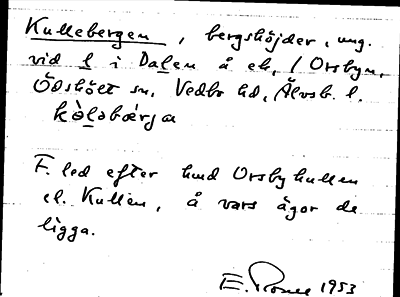 Kullebergen, bergshöjder, ung.
vid l i Dalen å ek, / Orsbyn,
Ödskölt sn, Vedbo hd, Älvsb. l.
kòləbærja
F. led efter hmd Orsbykullen
el. Kullen, å vars ägor de
ligga.
E. 1953